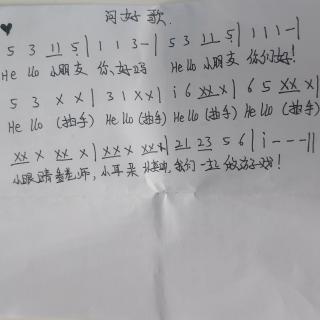 问好歌.
5 3 11 5 | 1 1 3 - | 5 3 11 5 | 1 1 1 - |
Hello 小朋友 你好吗 Hello 小朋友 你们好!
5 3 x x | 3 1 x x | i 6 xx x | 6 5 xx x |
Hello (拍手) Hello (拍手) Hello (拍手) Hello (拍手)
xx x xx x | xx x xx x | 21 23 5 6 | i - - - ||
小眼睛看老师, 小耳朵 我们一起做游戏!